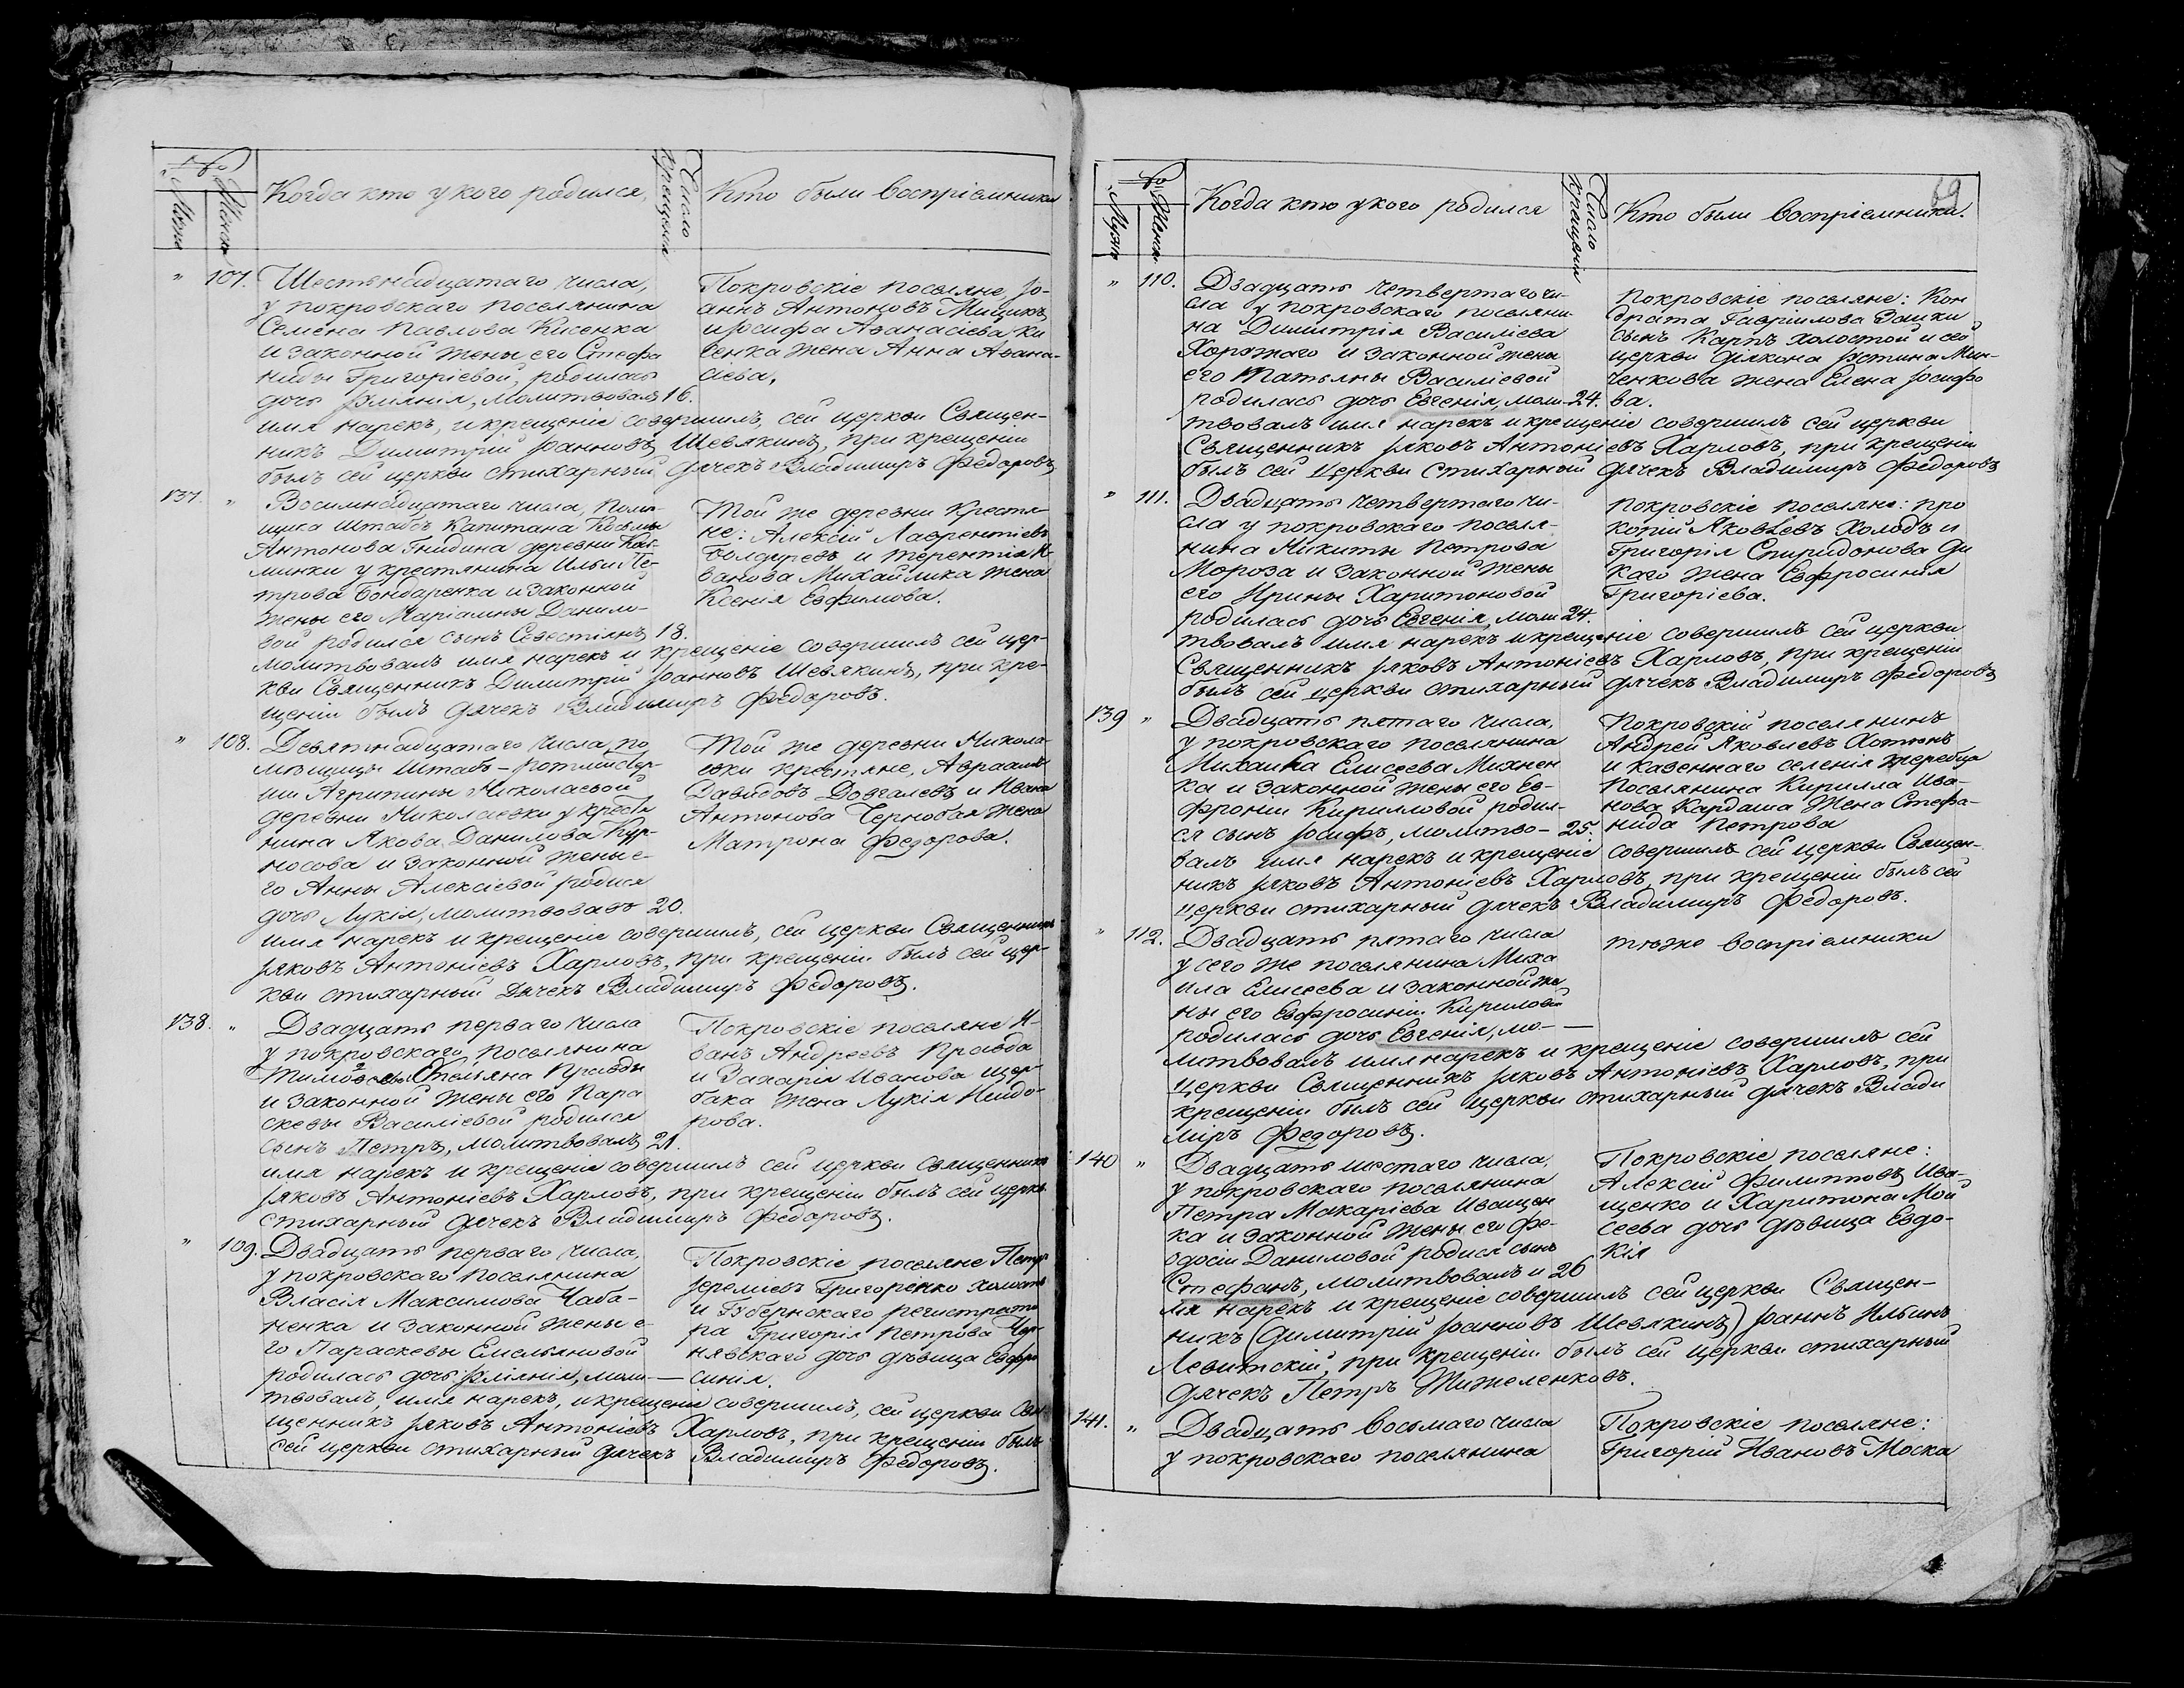 Мужс
Женск
Когда кто у кого родился,
Число крещенія
Кто были воспріемники
" 107.
Шестьнадцатаго числа,
у покровскаго поселянина
Семена Павлова Кисенка
и законной жены его Стефа
ниды Григоріевой, родилась
дочь Іуліанія, молитвовалъ 16.
имя нарекъ, и крещеніе совершилъ, сей церкви Священ-
никъ Димитрій Іоанновъ Шевякинъ, при крещеніи
былъ сей церкви стихарный дячекъ Владимиръ Федоровъ
Покровскіе поселяне, Іо-
аннъ Антоновъ Мищикъ
и Іосифа Аѳанасіева Ки
сенка жена Анна Аѳана-
сіева.
137. "
Восемнадцатаго числа, Поме-
щика Штабсъ Капитана Козьмы
Антонова Гнидина деревни
минки у крестянина Ильи Пе-
трова Бондаренка и законной
жены его Маріамны Данило-
вой родился сынъ Севестіянъ 18.
молитвовалъ имя нарекъ и крещеніе совершилъ сей цер-
кви Священникъ Димитрій Іоанновъ Шевякинъ, при кре-
щеніи былъ дячекъ Владимиръ Федоровъ.
Той же деревни крестя-
не: Алексій Лаврентіевъ
Болдыревъ и Терентія И-
ванова Михайлика жена
Ксенія Евфимова.
" 108.
Девятнадцатаго числа, по
мѣщицы Штабъ-ротмистр-
ши Агрипины Николаевой
деревни Николаевки у крестя
нина Якова Данилова Кур-
носова и законной жены е-
го Анны Алексіевой родися
дочь Лукія, молитвовалъ 20.
имя нарекъ и крещеніе совершилъ, сей церкви Священникъ
Іяковъ Антоніевъ Харловъ, при крещеніи былъ сей цер-
кви стихарный Дячекъ Владимиръ Федоровъ.
Той же деревни Никола-
евки крестяне, Авраамъ
Давидовъ Довгалевъ и Ивана
Антонова Чернобая жена
Матрона Федорова.
138. "
Двадцать перваго числа
у покровскаго поселянина
Емельяна Правды
и законной жены его Пара
скевы Василіевой родился
сынъ Петръ, молитвовалъ 21.
имя нарекъ и крещеніе совершилъ сей церкви Священникъ
Іяковъ Антоніевъ Харловъ, при крещеніи былъ сей церкв
стихарный дячекъ Владимиръ Федоровъ.
Покровскіе поселяне И-
ванъ Андреевъ Правда
и Захарія Иванова Щер-
бака жена Лукія Неидо-
рова.
" 109.
Двадцать перваго числа,
у покровскаго поселянина
Власія Максимова Чаба-
ненка и законной жены е-
го Параскевы Емельяновой
родилась дочь Іуліанія, моли-
твовалъ, имя нарекъ, и крещеніе совершилъ, сей церкви Свя
щенникъ Іяковъ Антоніевъ Харловъ, при крещеніи былъ
сей церкви стихарный дячекъ Владимиръ Федоровъ.
Покровскіе поселяне Петръ
Іереміевъ Григоренко холостъ
и Губернскаго регистрато
ра Григорія Петрова Чер-
нявскаго дочь дѣвица Евфро
синія.
69
Мужс
Женск
Когда кто у кого родился
Число крещенія
Кто были воспріемники.
" 110.
Двадцать четвертаго чи-
сла у покровскаго поселяни-
на Димитрія Василіева
Хоружаго и законной жены
его Татьяны Василіевой
родилась дочь Евгенія, моли-24.
твовалъ имя нарекъ и крещеніе совершилъ сей церкви
Священникъ Іяковъ Антоніевъ Харловъ, при крещеніи
былъ сей Церкви стихарный дячекъ Владимиръ Федоровъ
Покровскіе поселяне: Кон
драта Гавріилова Заики
сынъ Карпъ холостой и сей
церкви діякона Іустина Мин-
ченкова жена Елена Іосифо
ва.
" 111.
Двадцать четвертаго чи-
сла у покровскаго поселя-
нина Никиты Петрова
Мороза и законной жены
его Ирины Харитоновой
родилась дочь Евгенія, моли 24.
твовалъ имя нарекъ и крещеніе совершилъ сей церкви
Священникъ Іяковъ Антоніевъ Харловъ, при крещеніи
былъ сей церкви стихарный дячекъ Владимиръ Федоровъ
Покровскіе поселяне: Про
копій Яковлевъ Холодъ и
Григорія Спиридонова Ди
каго жена Евфросинія
Григоріева.
139 "
Двадцать пятаго числа,
у покровскаго поселянина
Михаила Елисеева Михнен
ка и законной жены его Ев-
фроніи Кирилловой родил-
ся сынъ Іосифъ, молитво- 25.
валъ имя нарекъ и крещеніе совершилъ сей церкви Священ-
никъ Іяковъ Антоніевъ Харловъ, при крещеніи былъ сей
церкви стихарный дячекъ Владимиръ Федоровъ.
Покровскій поселянинъ
Андрей Яковлевъ Хотюнъ
и казеннаго селенія Жеребца
Поселянина Кирилла Ива-
нова Кардаша жена Стефа-
нида Петрова
" 112.
Двадцать пятаго числа
у сего же поселянина Миха
ила Елисеева и законной же
ны его Евфросиніи Кириловой
родилась дочь Евгенія, мо-
литвовалъ имя нарекъ и крещеніе совершилъ сей
Церкви Священникъ Іяковъ Антоніевъ Харловъ, при
крещеніи былъ сей церкви стихарный дячекъ Влади
міръ Федоровъ.
тѣже воспріемники
140 "
Двадцать шестаго числа,
у покровскаго поселянина
Петра Макаріева Иващен
ка и законной жены его Фе-
одосіи Даниловой родися сынъ
Стефанъ, молитвовалъ и 26
мя нарекъ и крещеніе совершилъ сей церкви Священ-
никъ (Димитрій Іоанновъ Шевякинъ) Іоаннъ Ильинъ
Левитскій, при крещеніи былъ сей церкви стихарный
дячекъ Петръ Тижеленковъ.
Покровскіе поселяне:
Алексій Филиповъ Ива-
щенко и Харитона Мой
сеева дочь дѣвица Евдо-
кія
141. "
Двадцать восьмаго числа
у покровскаго поселянина
Покровскіе поселяне:
Григорій Ивановъ Моска